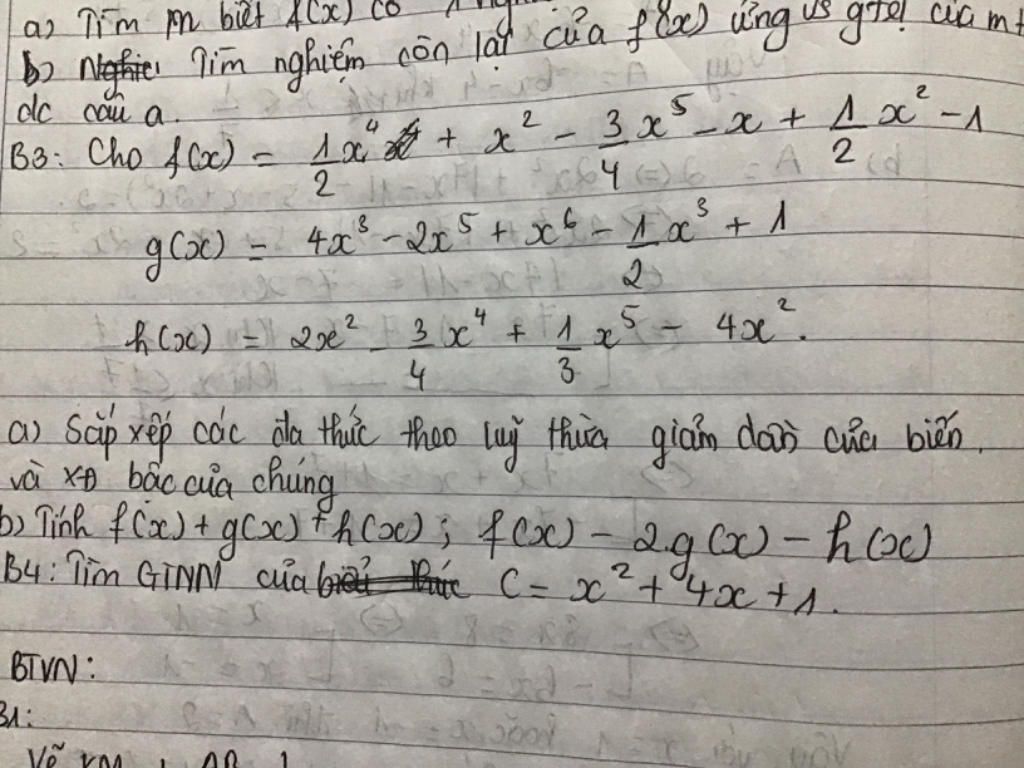 a) Tìm m biết f(x) có 1
b) Tìm nghiệm còn lại của f(x) ứng vs gtrị của m t
dc câu a.
B3: Cho f(x) = 1/2 x⁴ + x² - 3/4 x⁵ - x + 1/2 x² - 1
g(x) = 4x³ - 2x⁵ + x⁶ - 1/2 x³ + 1
h(x) = 2x² - 3/4 x⁴ + 1/3 x⁵ - 4x².
a) Sắp xếp các đa thức theo luỹ thừa giảm dần của biến.
và XĐ bậc của chúng
b) Tính f(x) + g(x) + h(x); f(x) - 2.g(x) - h(x)
B4: Tìm GTNN của C = x² + 4x + 1.
BTVN:
B1:
Vẽ